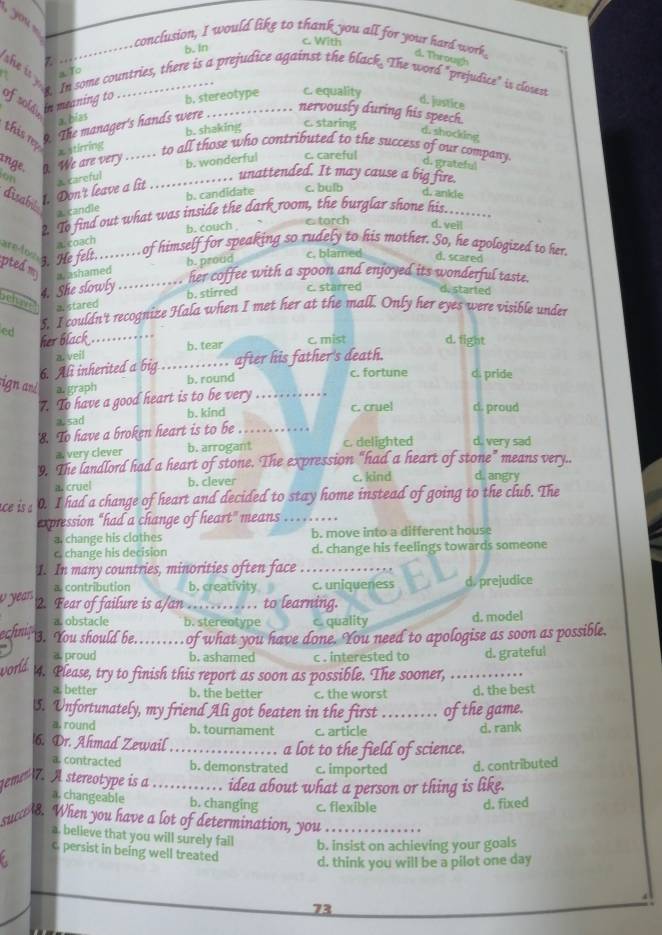 7. ............conclusion, I would like to thank you all for your hard work.
a. To b. In c. With d. Through
8. In some countries, there is a prejudice against the black. The word "prejudice" is closest
in meaning to ..............
a. bias b. stereotype c. equality d. justice
9. The manager's hands were ............ nervously during his speech.
a. stirring b. shaking c. staring d. shocking
0. We are very ...... to all those who contributed to the success of our company.
a. careful b. wonderful c. careful d. grateful
1. Don't leave a lit ............ unattended. It may cause a big fire.
a. candle b. candidate c. bulb d. ankle
2. To find out what was inside the dark room, the burglar shone his.........
a. coach b. couch c. torch d. veil
3. He felt.........of himself for speaking so rudely to his mother. So, he apologized to her.
a. ashamed b. proud c. blamed d. scared
4. She slowly ............ her coffee with a spoon and enjoyed its wonderful taste.
a. stared b. stirred c. starred d. started
5. I couldn't recognize Hala when I met her at the mall. Only her eyes were visible under
her black............
a. veil b. tear c. mist d. fight
6. Ali inherited a big ............ after his father's death.
a. graph b. round c. fortune d. pride
7. To have a good heart is to be very ............
a. sad b. kind c. cruel d. proud
8. To have a broken heart is to be ............
a. very clever b. arrogant c. delighted d. very sad
9. The landlord had a heart of stone. The expression "had a heart of stone" means very..
a. cruel b. clever c. kind d. angry
0. I had a change of heart and decided to stay home instead of going to the club. The
expression "had a change of heart" means .........
a. change his clothes b. move into a different house
c. change his decision d. change his feelings towards someone
1. In many countries, minorities often face ...............
a. contribution b. creativity c. uniqueness d. prejudice
2. Fear of failure is a/an ............ to learning.
a. obstacle b. stereotype c. quality d. model
3. You should be.........of what you have done. You need to apologise as soon as possible.
a. proud b. ashamed c. interested to d. grateful
4. Please, try to finish this report as soon as possible. The sooner, ............
a. better b. the better c. the worst d. the best
5. Unfortunately, my friend Ali got beaten in the first ......... of the game.
a. round b. tournament c. article d. rank
6. Dr. Ahmad Zewail .................. a lot to the field of science.
a. contracted b. demonstrated c. imported d. contributed
7. A stereotype is a ............ idea about what a person or thing is like.
a. changeable b. changing c. flexible d. fixed
8. When you have a lot of determination, you ...............
a. believe that you will surely fail b. insist on achieving your goals
c. persist in being well treated d. think you will be a pilot one day
73